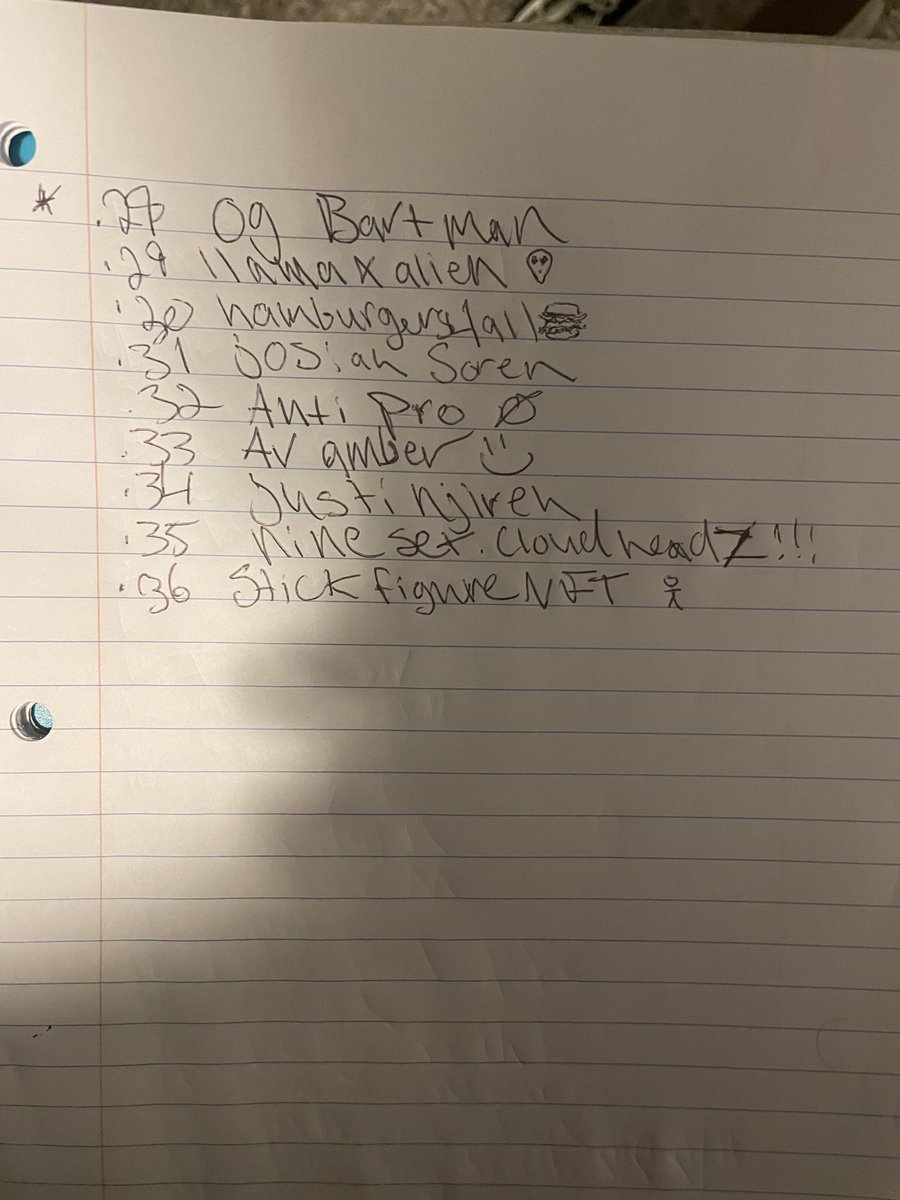 * .27 Og Bartman
.29 llamaxalien
.20 hamburgersfall
.31 josiah Soren
.32 Anti pro Ø
.33 Av amber
.34 justinjiren
.35 nine set. cloudheadz!!!
.36 StickfigureNFT